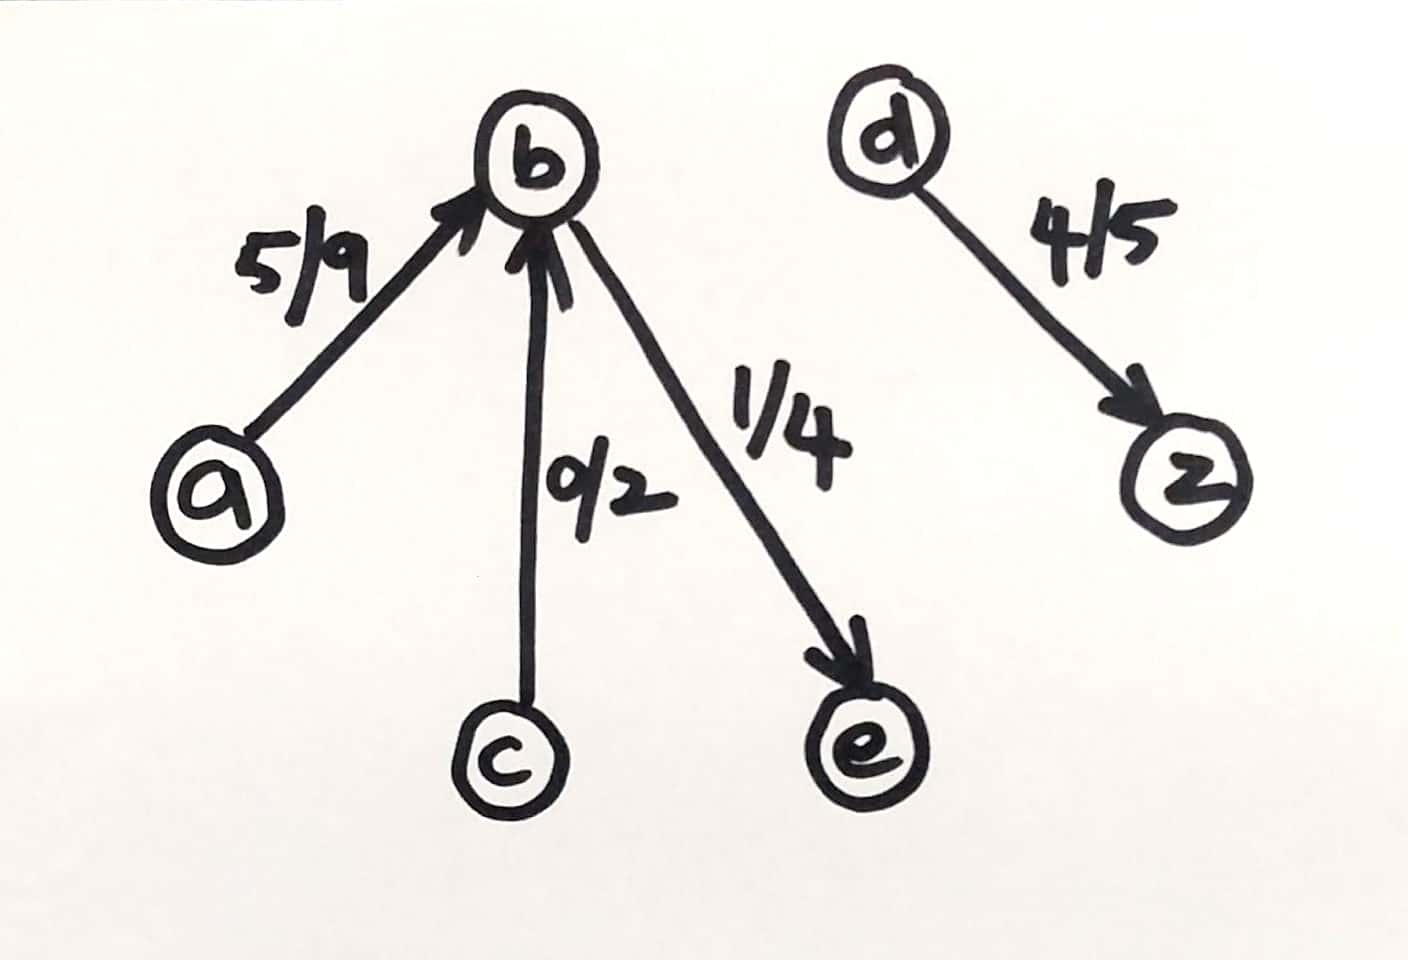 b
d
5/9
4/5
1/4
a
0/2
z
c
e